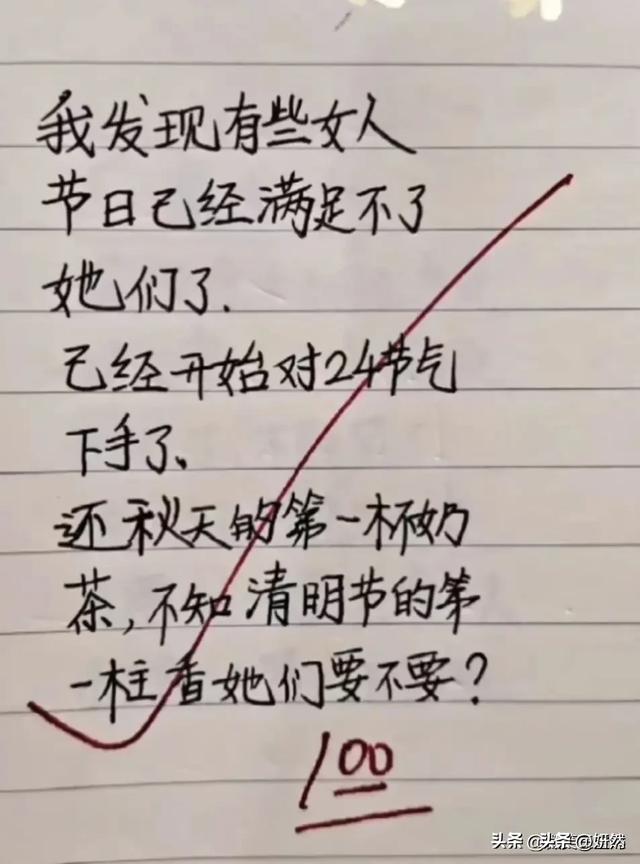 我发现有些女人
节日已经满足不了
她们了.
已经开始对24节气
下手了、
还秋天的第一杯奶
茶,不知清明节的第
一柱香她们要不要?
100
头条 @妍然